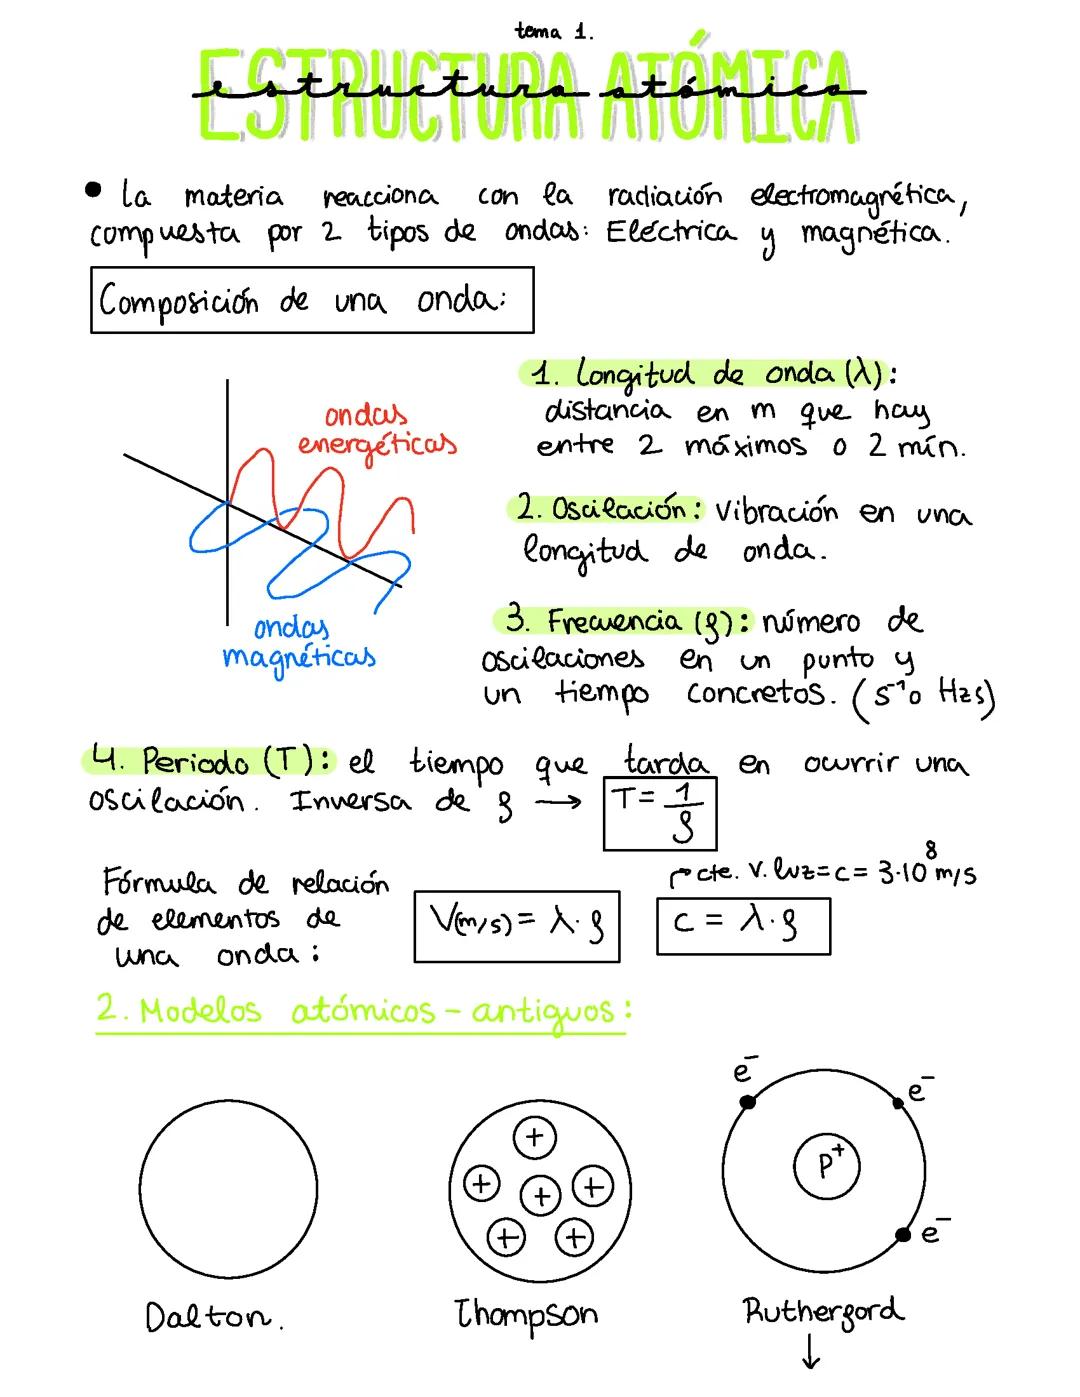 tema 1.
ESTRUCTURA ATÓMICA
estructura atómica
• La materia reacciona con la radiación electromagnética,
compuesta por 2 tipos de ondas: Eléctrica y magnética.
Composición de una onda:
ondas
energéticas
ondas
magnéticas
1. Longitud de onda (λ):
distancia en m que hay
entre 2 máximos o 2 mín.
2. Oscilación: Vibración en una
longitud de onda.
3. Frecuencia (f): número de
oscilaciones en un punto y
un tiempo concretos. (s⁻¹ o Hzs)
4. Periodo (T): el tiempo que tarda en ocurrir una
oscilación. Inversa de f → T = 1/f
Fórmula de relación
de elementos de
una onda:
V(m/s) = λ·f
cte. v. luz = c = 3·10⁸ m/s
c = λ·f
2. Modelos atómicos - antiguos:
+ + + + + +
e⁻ e⁻ p⁺ e⁻
Dalton. Thompson Rutherford
↓